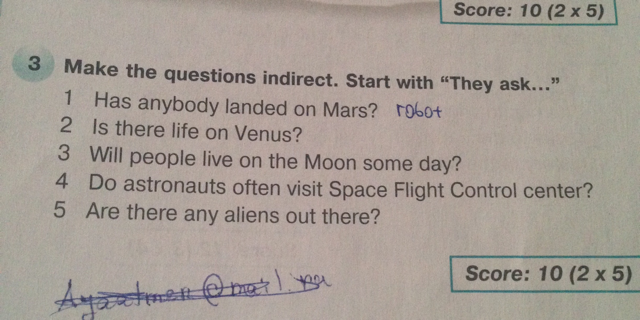 Score: 10 (2 x 5)
3 Make the questions indirect. Start with “They ask...”
1 Has anybody landed on Mars? robot
2 Is there life on Venus?
3 Will people live on the Moon some day?
4 Do astronauts often visit Space Flight Control center?
5 Are there any aliens out there?
Score: 10 (2 x 5)